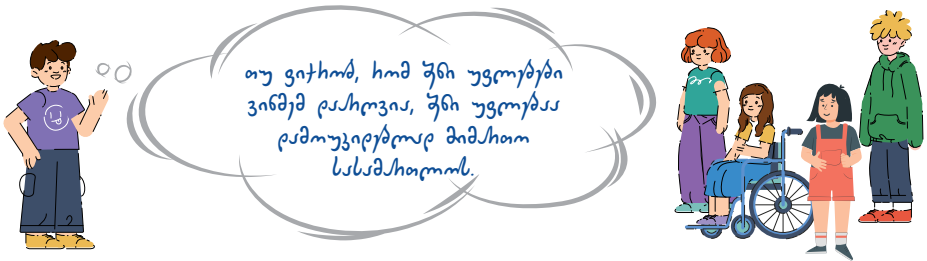 თუ ფიქრობ, რომ შენი უფლებები
ვინმემ დაარღვია, შენი უფლებაა
დამოუკიდებლად მიმართო
სასამართლოს.